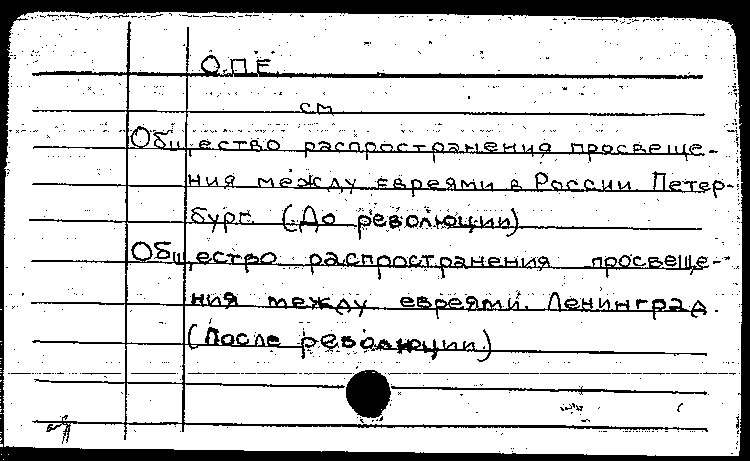 О.П.Е.
см
Общество распространения просвеще-
ния между евреями в России. Петер-
бург. (До революции)
Общество распространения просвеще-
ния между евреями. Ленинград.
(После революции)